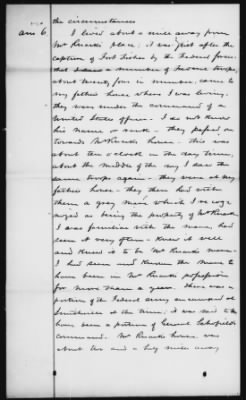 the circumstances
Ans 6. I lived about a mile away from
Mr Rusks place. it was just after the
capture of Fort Fisher by the Federal forces
that a number of Federal troops
about twenty four in number, came to
my father house where I was living;
they were under the command of a
United States officer. I do not know
his name or rank - they passed on
towards Mr Rusks house - this was
about ten o clock in the day time,
about the middle of the day I saw the
same troops again - they were at my
fathers house - they then had with
them a gray mare, which I recog
nized as being the property of Mr Rusk
I was familiar with the mare, had
seen it very often - knew it well
and knew it to be Mr Rusks mare -
I had seen and known the mare to
have been in Mr Rusks possession
for more than a year. there was a
portion of the Federal army encamped at
Smithville at the time; it was said to
have been a portion of General Schofields
command. Mr Rusks house was
about two and a half miles away